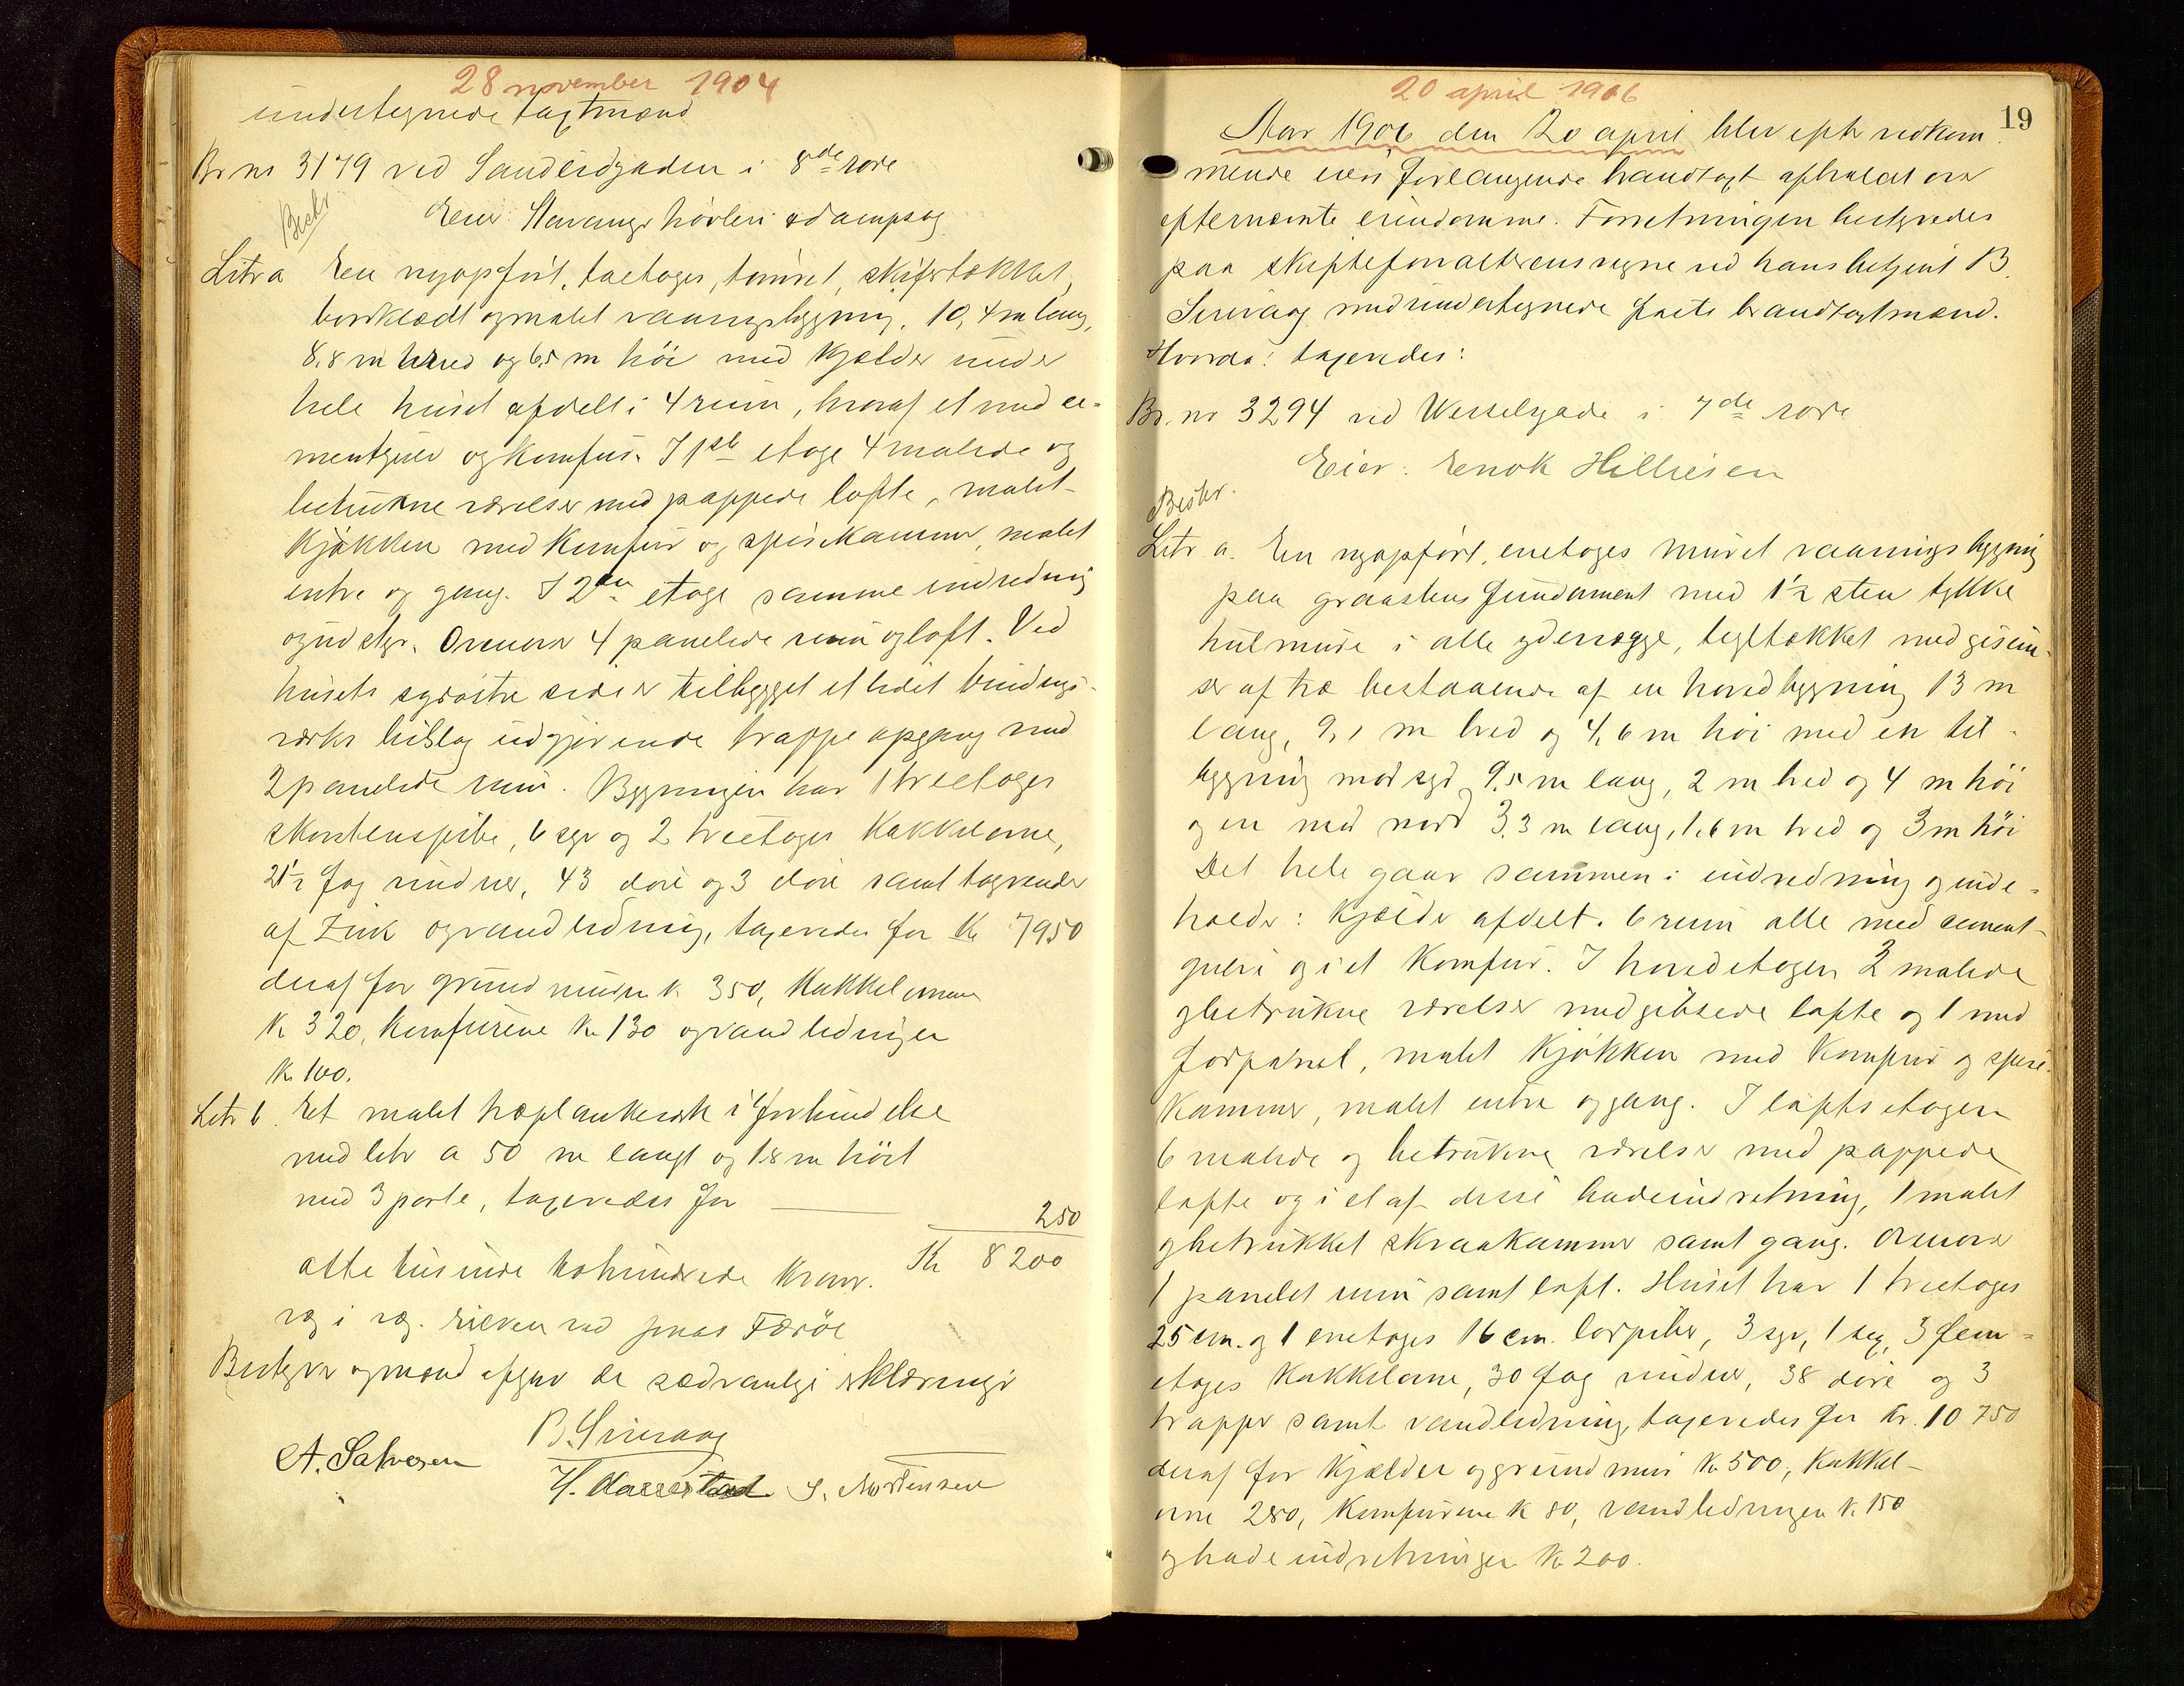 28 november 1904
undertegnede taxtmænd
Br no 3179 ved Sandeidgaden i 8de rode
Beskr.
Eier: Stavanger høvleri & dampsag
Litr a En nyopført, toetages, tømret, skifertækket,
bordklædt og malet vaaningsbygning, 10,4 m lang,
8,8 m bred og 6,5 m höi med kjælder under
hele huset afdelt i 4 rum, hvoraf et med ce-
mentgulv og komfur. I 1ste etage 4 malede og
betrukne værelser med pappede lofte, malet
kjøkken med komfur og spisekammer, malet
entre og gang. I 2den etage samme indredning
og udstyr. Ovenover 4 panelede rum og loft. Ved
husets sydøstre side er tilbygget et lidet bindings-
værks bislag udgjørende trappeopgang med
2 panelede rum. Bygningen har 1 treetages
skorstenspibe, 6 syv og 2 treetages kakkelovne,
21½ fag vinduer, 43 döre og 3 döre samt tagrender
af Zink og vandledning, taxeredes for Kr 7950
deraf for grundmuren k. 350, kakkelovnene
K 320, komfurene Kr 130 og vandledningen
K. 100.
Litr b. Et malet træplankeværk i forbindelse
med litr a 50 m langt og 1,8 m höit
med 3 porte, taxeredes for 250
Kr 8200
otte tusinde tohundrede kroner.
Bestyrer og mænd afgav de sædvanlige erklæringer
B. Sirevaag
A. Salvesen
H. Aarrestad S. Mortensen
20 april 1906
19
Aar 1906 den 20 april blev efter vedkom-
mende eiers forlangende brandtaxt afholdt over
efternævnte eiendomme. Forretningen bestyredes
paa skifteforvalterens vegne ved hans betjent B.
Sirevaag med undertegnede faste brandtaxtmænd.
Hvorda! taxeredes:
Br. no 3294 ved Wesselsgade i 7de rode
Eier: Enok Helliesen
Beskr.
Litr. a. En nyopført, enetages muret vaaningsbygning
paa graastens fundament med 1½ sten tykke
hulmure i alle ydervægge, tegltækket med gesim-
ser af træ bestaaende af en hovedbygning 13 m
lang, 9,1 m bred og 4,6 m höi med en til-
bygning mod syd 9,5 m lang, 2 m bred og 4 m höi
og en mod nord 3,3 m lang, 1,6 m bred og 3 m höi
Det hele gaar sammen i indredning og inde-
holder: kjælder afdelt i 6 rum alle med cement-
gulv og i et komfur. I hovedetagen 2 malede
og betrukne værelser med gibsede lofte og 1 med
forpanel, malet kjøkken med komfur og spise-
kammer, malet entre og gang. I loftsetagen
6 malede og betrukne værelser med pappede
lofte og i et af disse badeindretning, 1 malet
og betrukket skraakammer samt gang. Ovenover
1 panelet rum samt loft. Huset har 1 treetages
25 cm. og 1 enetages 16 cm. lerpiber, 3 syv, 1 sex, 3 fem-
etages kakkelovne, 30 fag vinduer, 38 döre og 3
trapper samt vandledning, taxeredes for kr. 10 750
deraf for kjælder og grundmur K 500, kakkel-
ovne 280, komfurene K 80, vandledningen K. 150
og badeindretningen K 200.